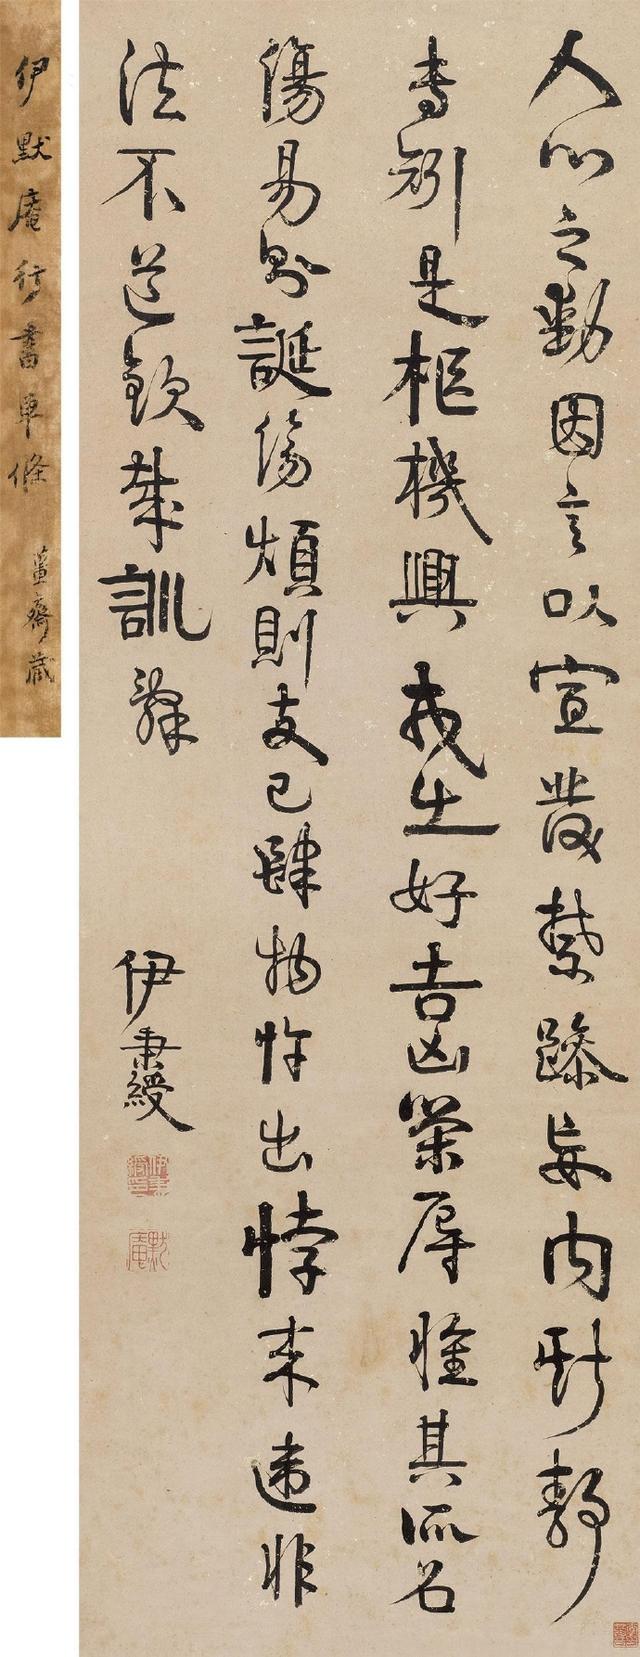 人心之動因言以宣發禁躁妄內斯靜
專矧是樞機興戎出好吉凶榮辱惟其所召
傷易則誕傷煩則支己肆物忤出悖來違非
法不道欽哉訓辭
伊秉綬
伊秉綬印
默庵
伊默庵行書單條
齋藏